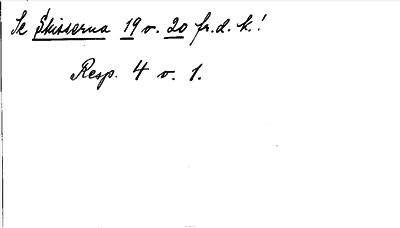 Se Skisserna 19 v. 20 fr. d. k.!
Resp. 4 v. 1.